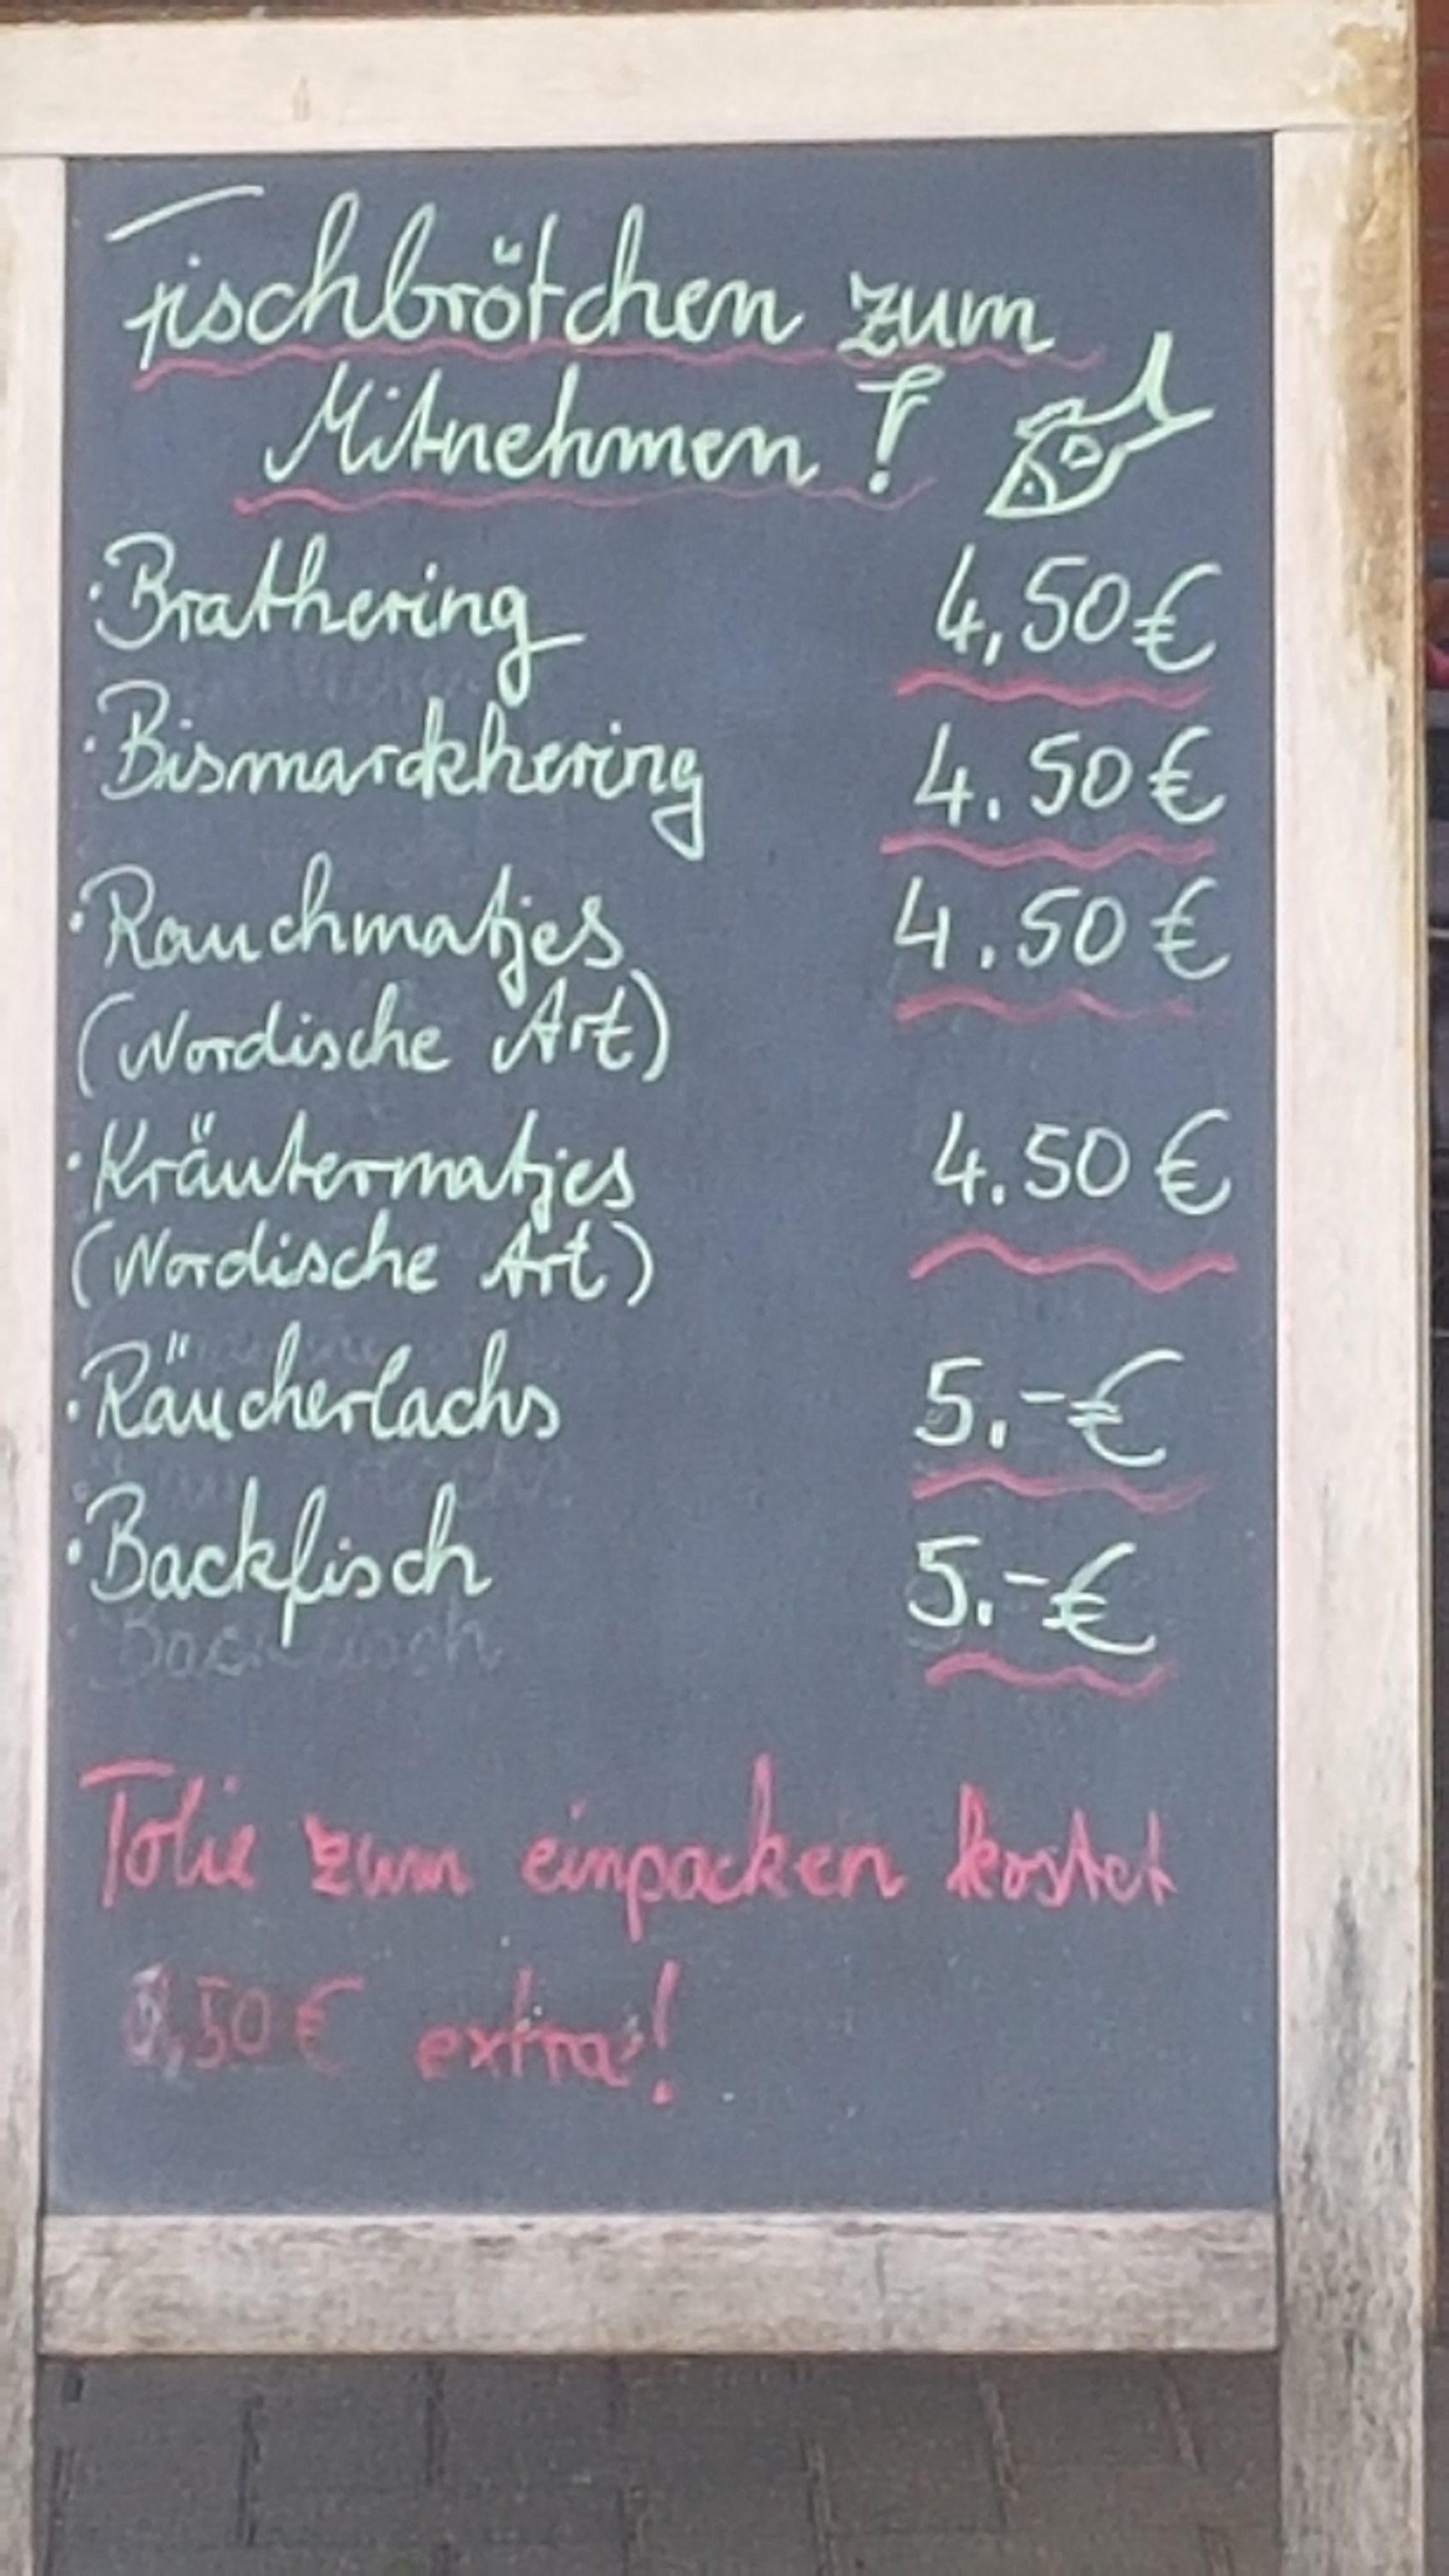 Fischbrötchen zum
Mitnehmen !
· Brathering 4,50 €
· Bismarckhering 4.50 €
· Rauchmatjes 4.50 €
(Nordische Art)
· Kräutermatjes 4.50 €
(Nordische Art)
· Räucherlachs 5.-€
· Backfisch 5.-€
Folie zum einpacken kostet
0,50 € extra!